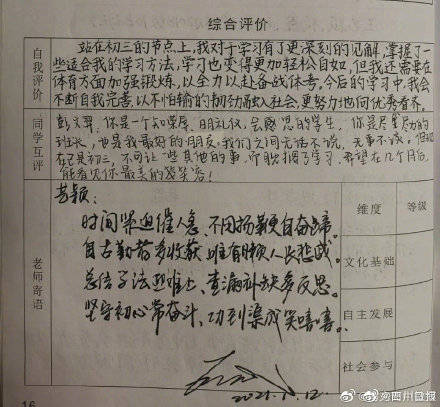 综合评价
自我评价
站在初三的节点上,我对于学习有了更深刻的见解,掌握了一
些适合我的学习方法,学习也变得更加轻松自如,但我还需要在
体育方面加强锻炼,以全力以赴备战体考。今后的学习中,我会
不断自我完善,以不怕输的韧劲融入社会,更努力地向优秀看齐。
同学互评
你是一个知荣辱、明礼仪、会感恩的学生,你是尽责尽力的
班长,也是我最好的朋友,我们之间无话不说,无事不谈。但现
在已是初三,不可让一些其他的事,耽搁了学习。希望在几个月后,
能看见你最美的笑容!
老师寄语
时间紧迫催人急、不用扬鞭自奋蹄。
自古勤苦多收获、唯有懒人长悲戚。
总结方法迎难上、查漏补缺多反思。
坚守初心常奋斗、功到渠成笑嘻嘻。
2021.
12.
维度
等级
文化基础
自主发展
社会参与
16
@四川日报